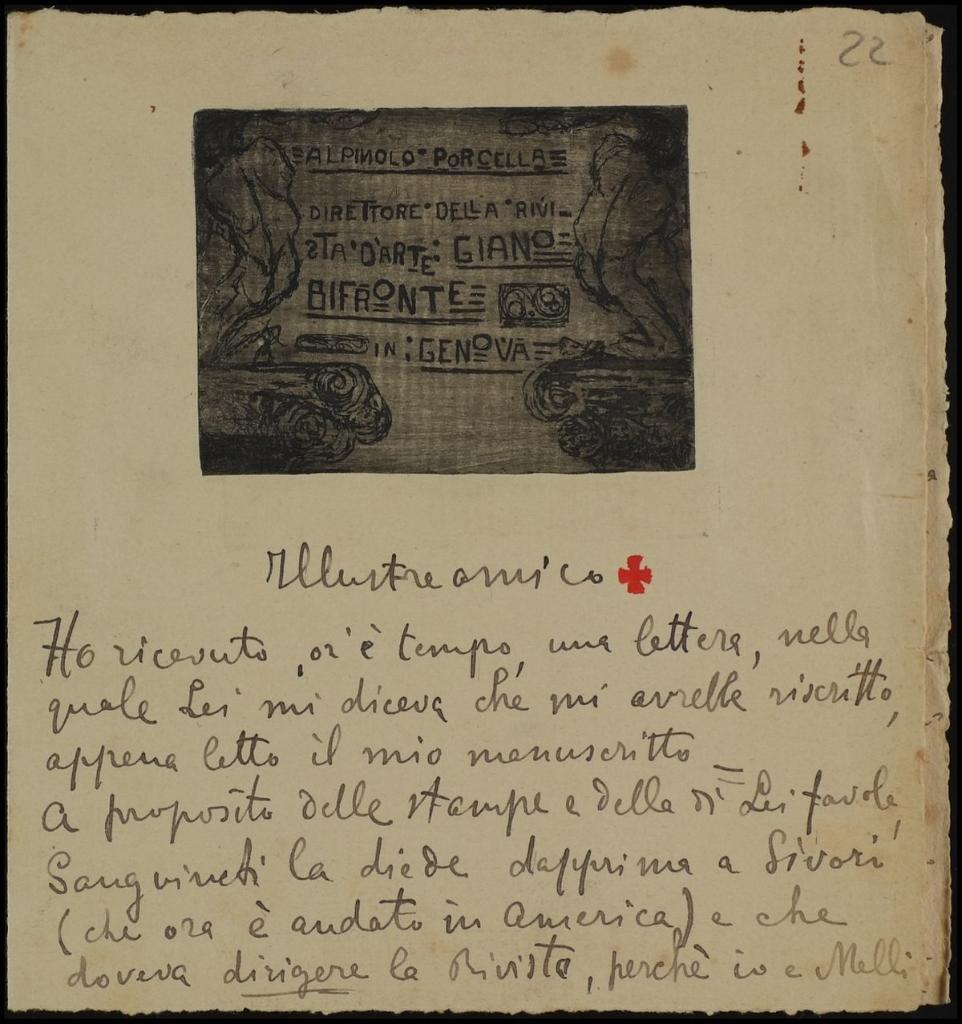 22
ALPINOLO PORCELLA
DIRETTORE DELLA RIVI-
STA D'ARTE: GIANO
BIFRONTE
IN: GENOVA
Illustre amico
Ho ricevuto, or'è tempo, una lettera, nella
quale Lei mi diceva che mi avrebbe riscritto,
appena letto il mio manuscritto –
A proposito delle stampe e della di Lei favola,
Sanguineti la diede dapprima a Sivori
(che ora è andato in America) e che
doveva dirigere la Rivista, perchè io e Melli